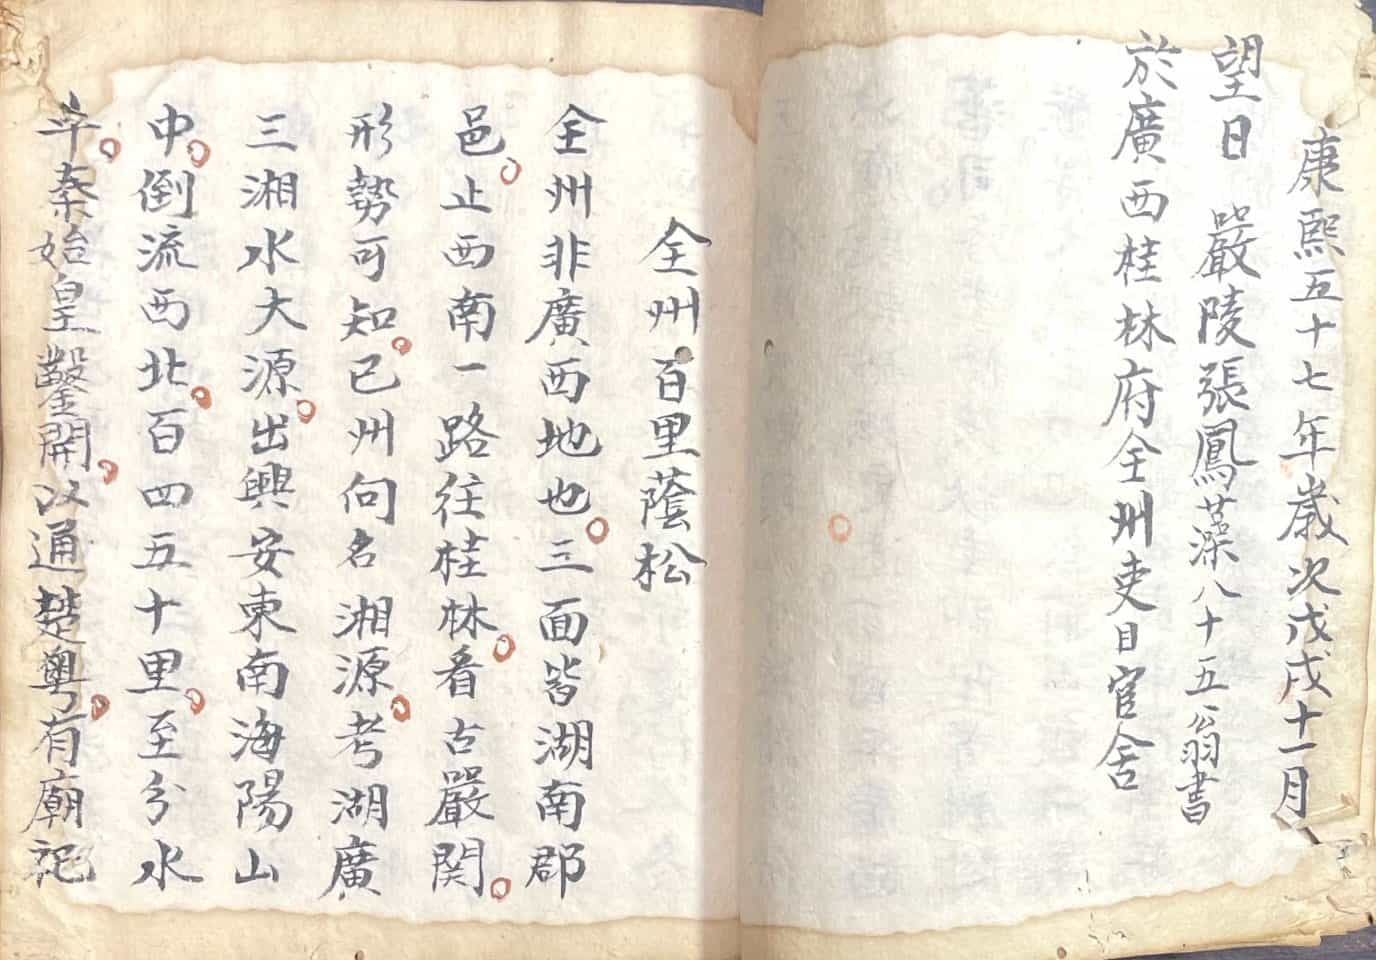 康熙五十七年歲次戊戌十一月
望日 嚴陵張鳳藻八十五翁書
於廣西桂林府全州吏目官舍
全州百里蔭松
全州非廣西地也三面皆湖南郡
邑止西南一路往桂林看古嚴関
形勢可知已州何名湘源考湖廣
三湘水大源出興安東南海陽山
中倒流西北百四五十里至分水
斗秦始皇鑿開以通楚粵有廟祀